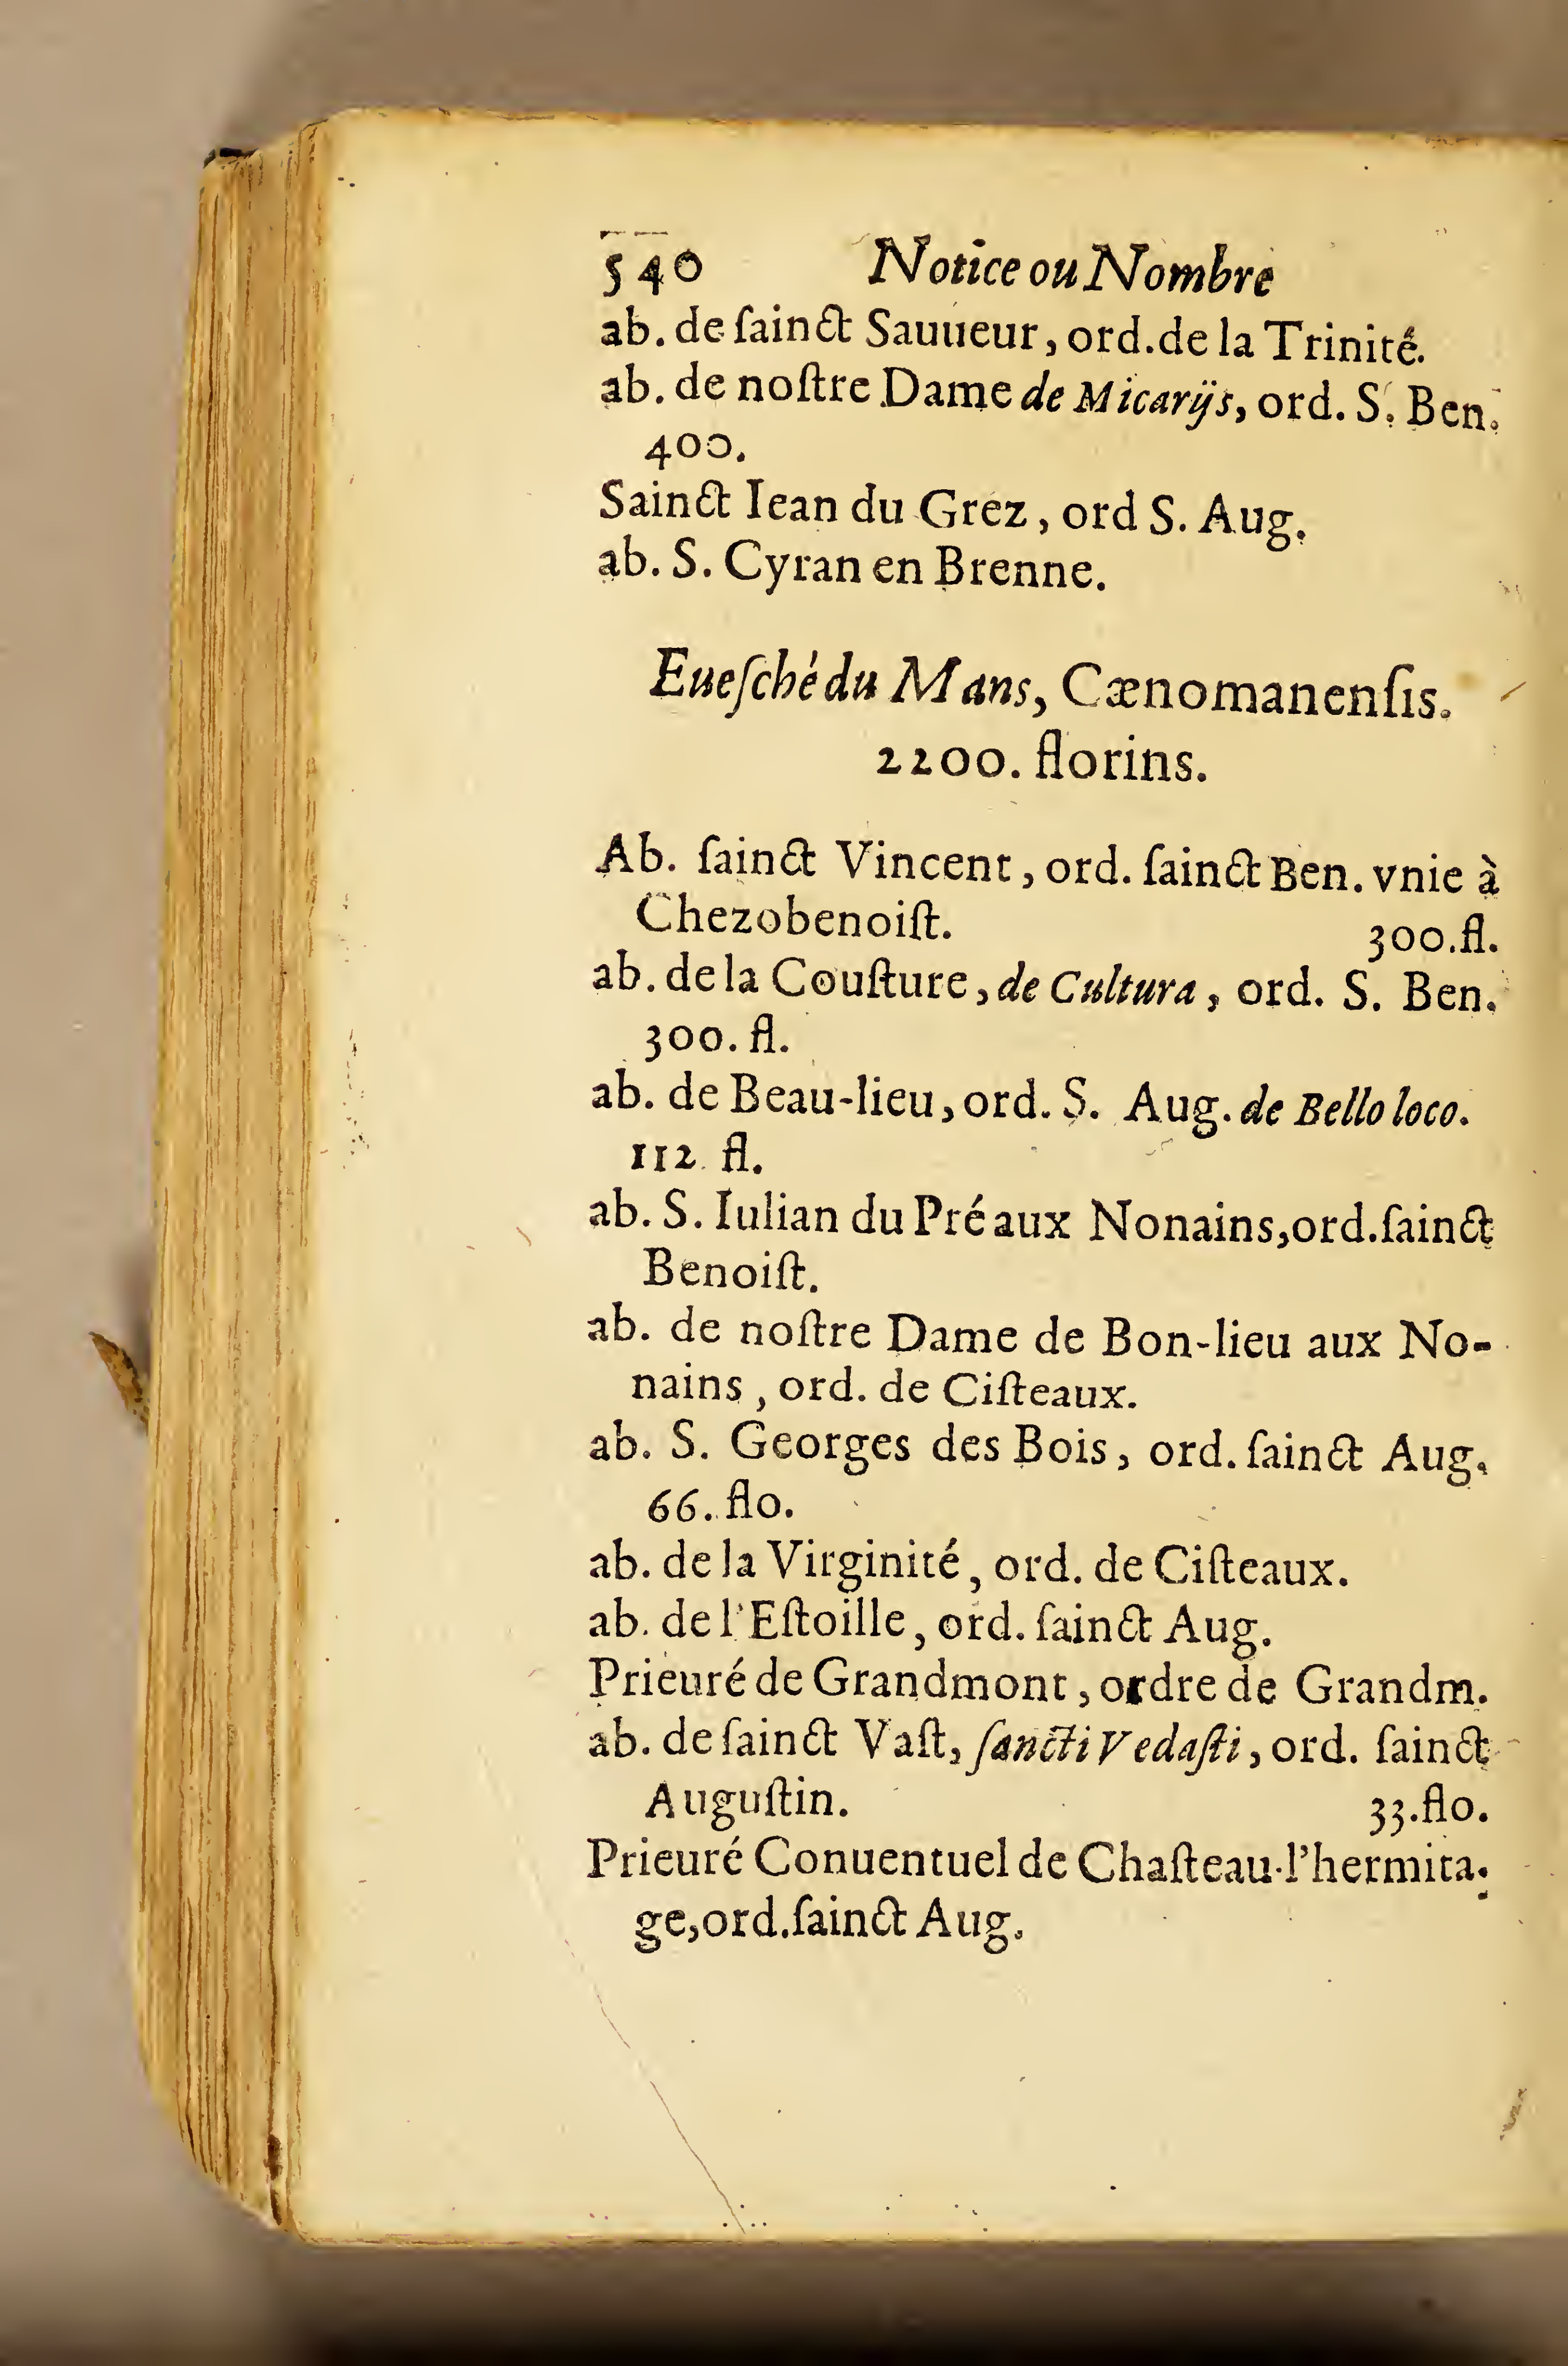 540 Notice ou Nombre
ab. de ſainct Sauueur, ord. de la Trinité.
ab. de noſtre Dame de Micarijs, ord. S. Ben.
400.
Sainct Iean du Grez, ord S. Aug.
ab. S. Cyran en Brenne.
Eueſché du Mans, Cænomanenſis.
2200. florins.
Ab. ſainct Vincent, ord. ſainct Ben. vnie à
Chezobenoiſt. 300.fl.
ab. de la Couſture, de Cultura, ord. S. Ben.
300. fl.
ab. de Beau-lieu, ord. S. Aug. de Bello loco.
112. fl.
ab. S. Iulian du Pré aux Nonains, ord. ſainct
Benoiſt.
ab. de noſtre Dame de Bon-lieu aux No-
nains, ord. de Ciſteaux.
ab. S. Georges des Bois, ord. ſainct Aug.
66. flo.
ab. de la Virginité, ord. de Ciſteaux.
ab. de l'Eſtoille, ord. ſainct Aug.
Prieuré de Grandmont, ordre de Grandm.
ab. de ſainct Vaſt, ſancti Vedaſti, ord. ſainct
Auguſtin. 33.flo.
Prieuré Conuentuel de Chaſteau-l'hermita-
ge, ord. ſainct Aug.